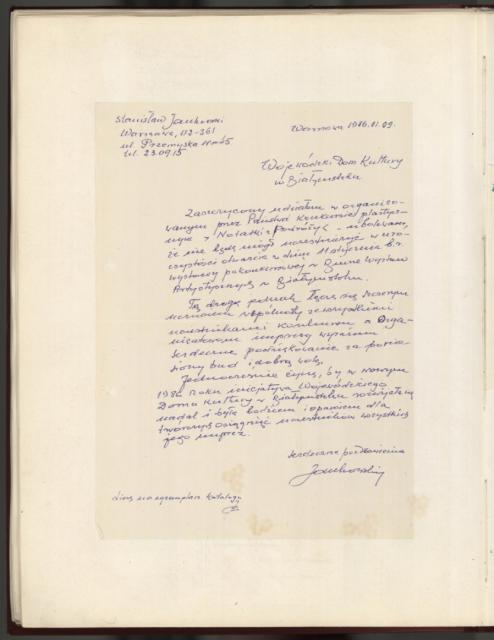 Stanisław
Warszawa,
ul. Przemyska 11
tel. 23.09.15
Warszawa 1986.01.09.
Wojewódzki Dom Kultury
w Białymstoku
Zaszczycony udziałem w organizo-
wanym przez Państwa Konkursie plastycz-
nym "Notatki z Podróży" - ubolewam,
że nie będę mógł uczestniczyć w uro-
czystości otwarcia w dniu 11 stycznia b.r.
wystawy pokonkursowej w Biurze Wystaw
Artystycznych w Białymstoku.
Tą drogą pragnę łączyć się
wspólnoty ze wszystkimi
uczestnikami konkursu a Orga-
nizatorom imprezy wyrazić
serdeczne podziękowanie za ponie-
siony trud i dobrą wolę.
Jednocześnie życzę, by w nowym
1986 roku inicjatywa Wojewódzkiego
Domu Kultury w Białymstoku
nadal i była bodźcem i oparciem dla
twórczych osiągnięć uczestników wszystkich
jego imprez.
serdecznie pozdrawiam
liczę na egzemplarz katalogu